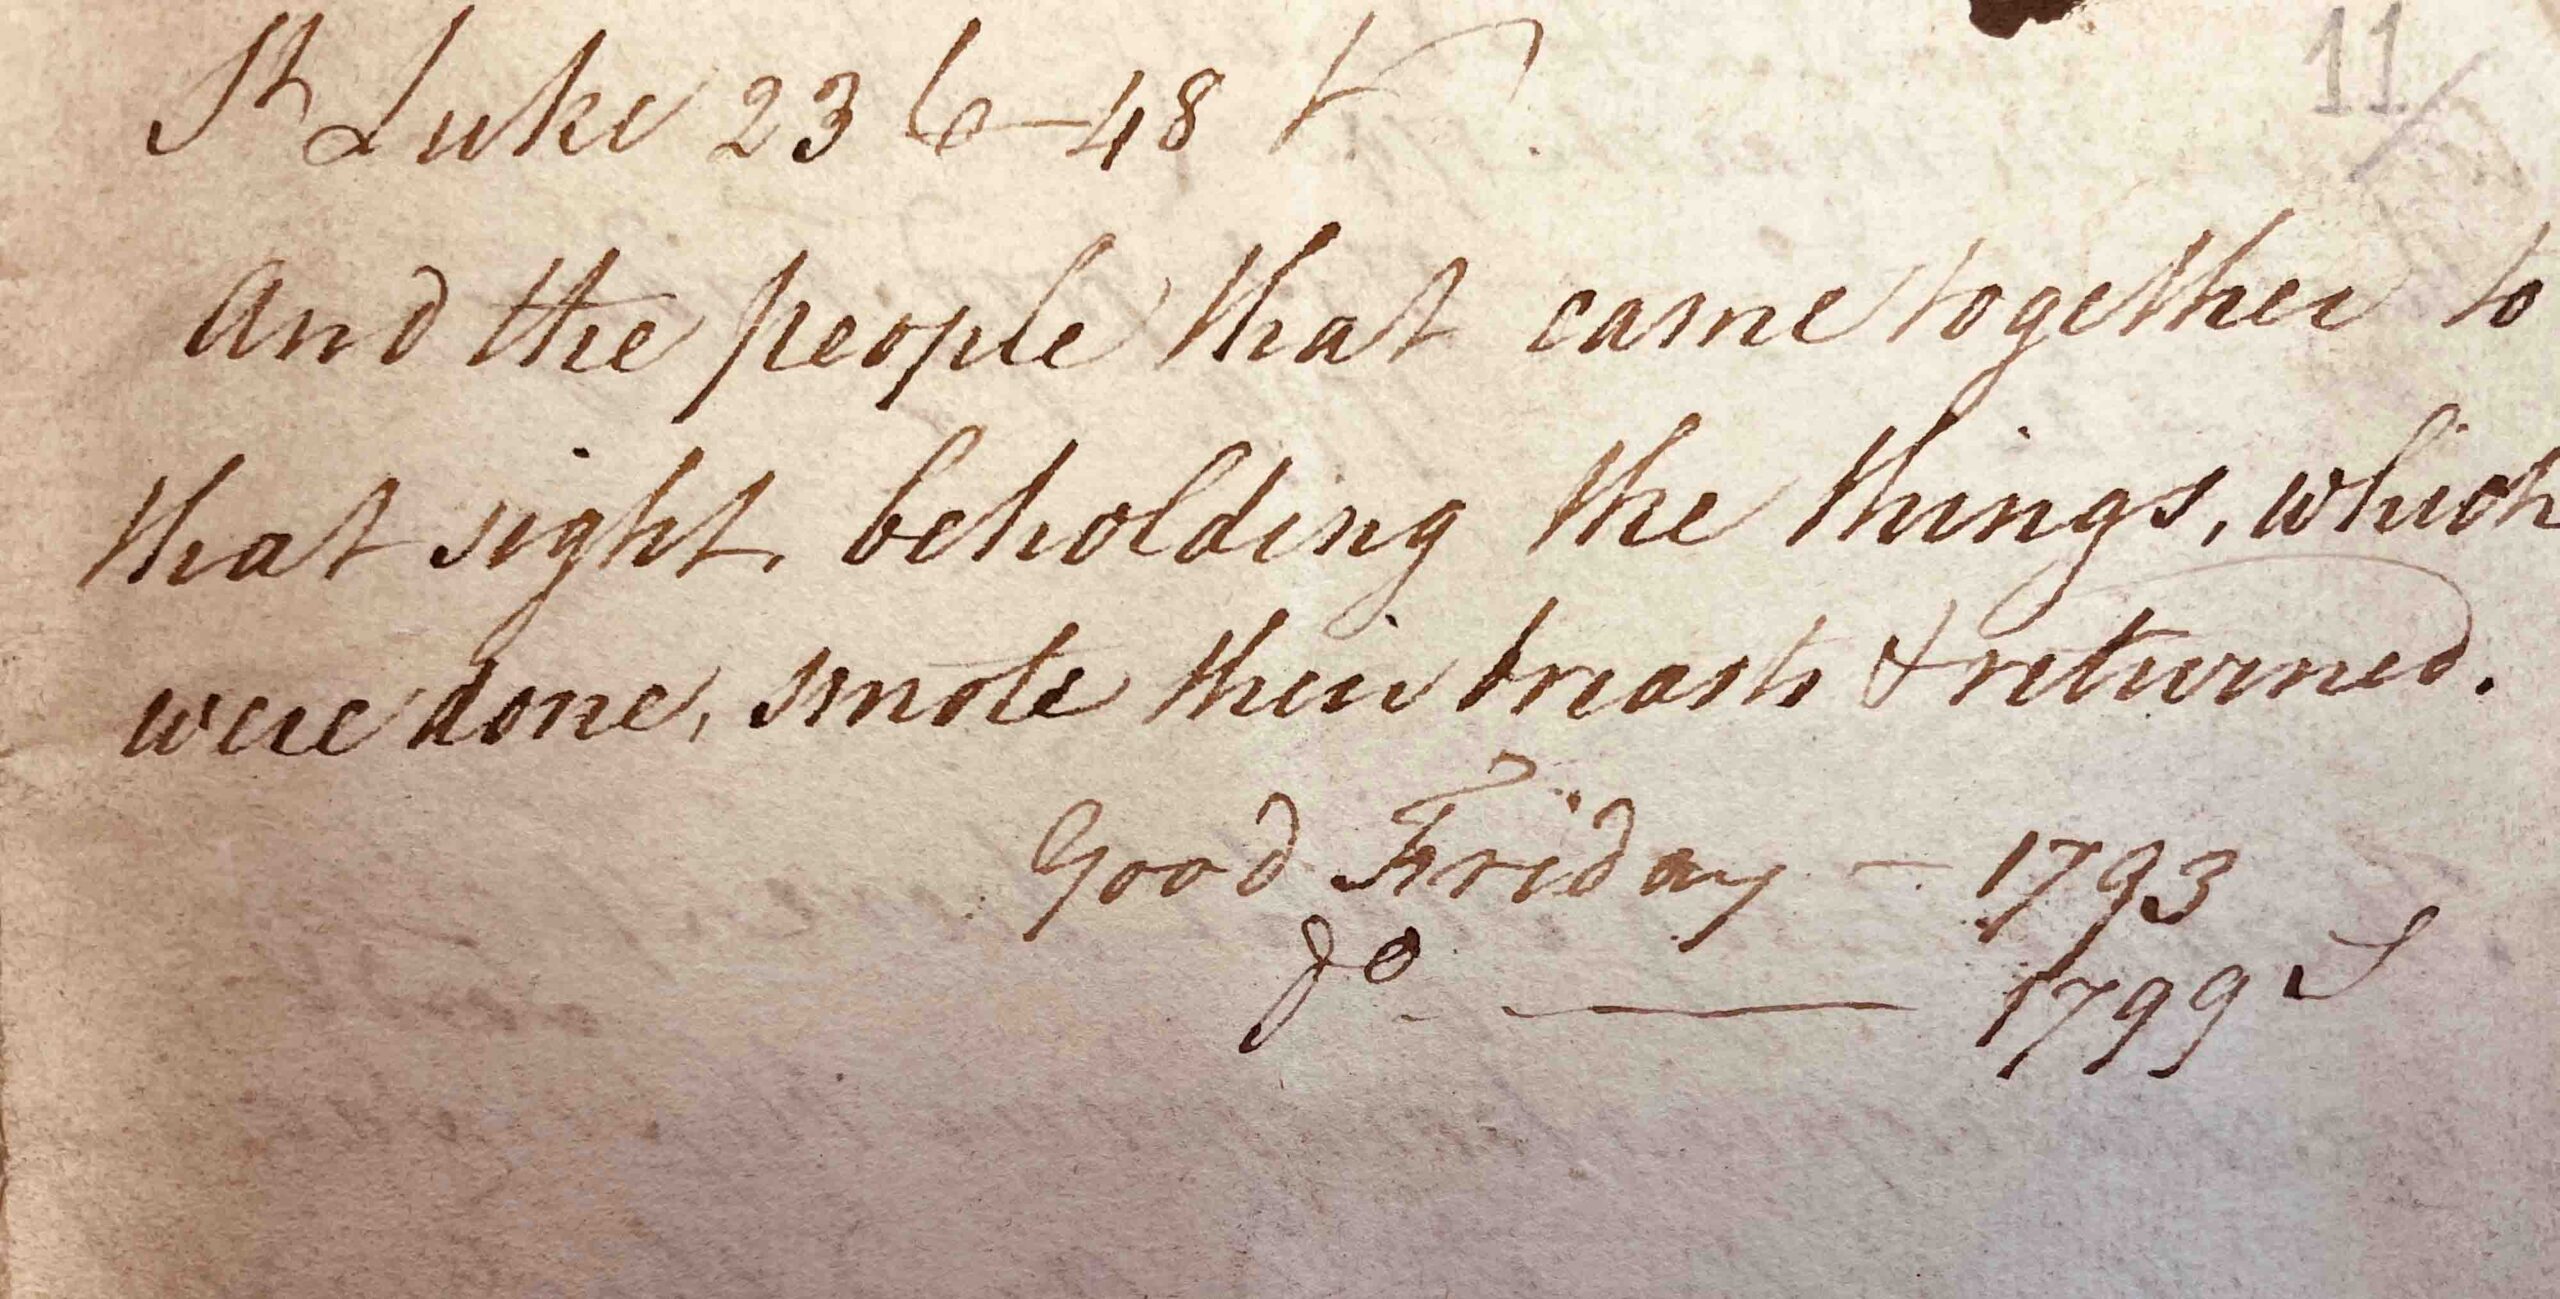 St Luke 23 C–48 V. 11/
And the people that came together to
that sight, beholding the things, which
were done, smote their breasts & returned.
Good Friday – 1793
Do. — 1799 S